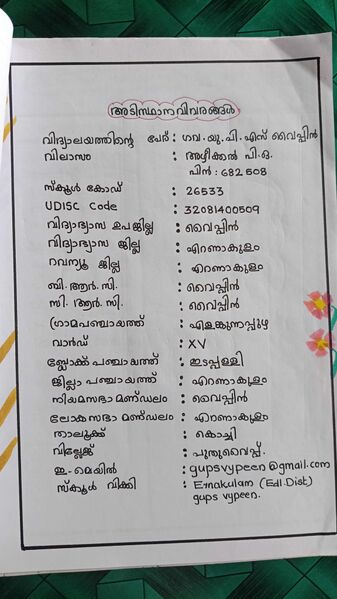 അടിസ്ഥാനവിവരങ്ങൾ
വിദ്യാലയത്തിന്റെ പേര് : ഗവ. യു. പി. എസ് വൈപ്പിൻ
വിലാസം : അഴീക്കൽ പി.ഒ.
പിൻ : 682 508
സ്കൂൾ കോഡ് : 26533
UDISC Code : 32081400509
വിദ്യാഭ്യാസ ഉപജില്ല : വൈപ്പിൻ
വിദ്യാഭ്യാസ ജില്ല : എറണാകുളം
റവന്യൂ ജില്ല : എറണാകുളം
ബി. ആർ. സി. : വൈപ്പിൻ
സി. ആർ. സി. : വൈപ്പിൻ
ഗ്രാമപഞ്ചായത്ത് : എളങ്കുന്നപ്പുഴ
വാർഡ് : XV
ബ്ലോക്ക് പഞ്ചായത്ത് : ഇടപ്പള്ളി
ജില്ലാ പഞ്ചായത്ത് : എറണാകുളം
നിയമസഭാ മണ്ഡലം : വൈപ്പിൻ
ലോകസഭാ മണ്ഡലം : എറണാകുളം
താലൂക്ക് : കൊച്ചി
വില്ലേജ് : പുതുവൈപ്പ്.
ഇ-മെയിൽ : gupsvypeen@gmail.com
സ്കൂൾ വിക്കി : Ernakulam (Edl.Dist)
gups vypeen.